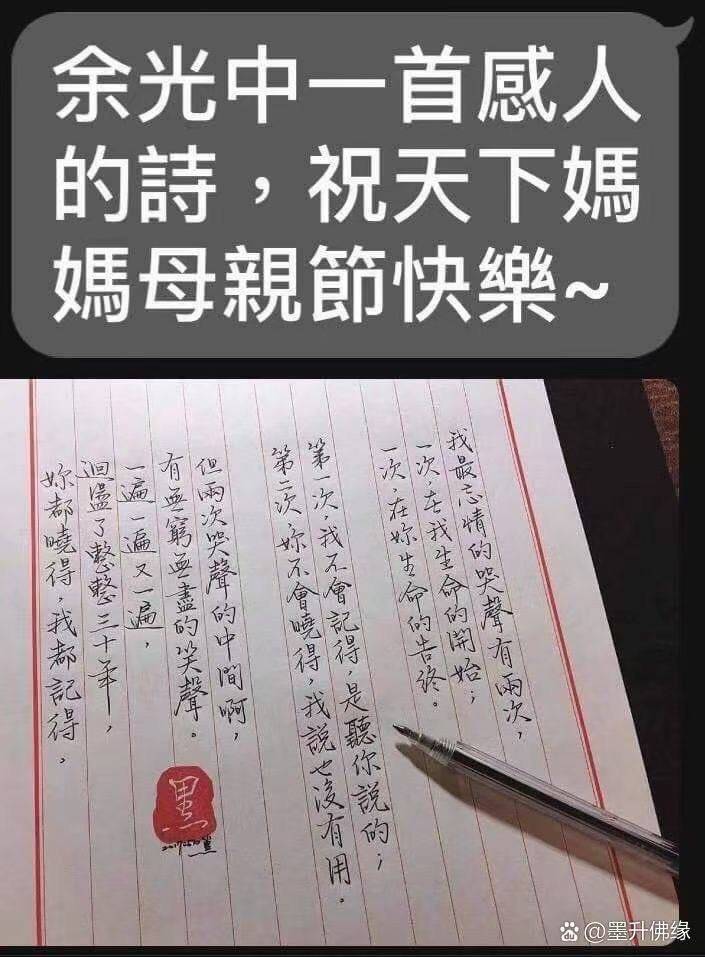 余光中一首感人
的詩，祝天下媽
媽母親節快樂~
我最忘情的哭聲有兩次，
一次，在我生命的開始；
一次，在妳生命的告終。
第一次，我不會記得，是聽你說的；
第二次，妳不會曉得，我說也沒有用。
但兩次哭聲的中間啊，
有無窮無盡的笑聲。
一遍一遍又一遍，
迴盪了整整三十年，
妳都曉得，我都記得。
墨
@墨升佛缘